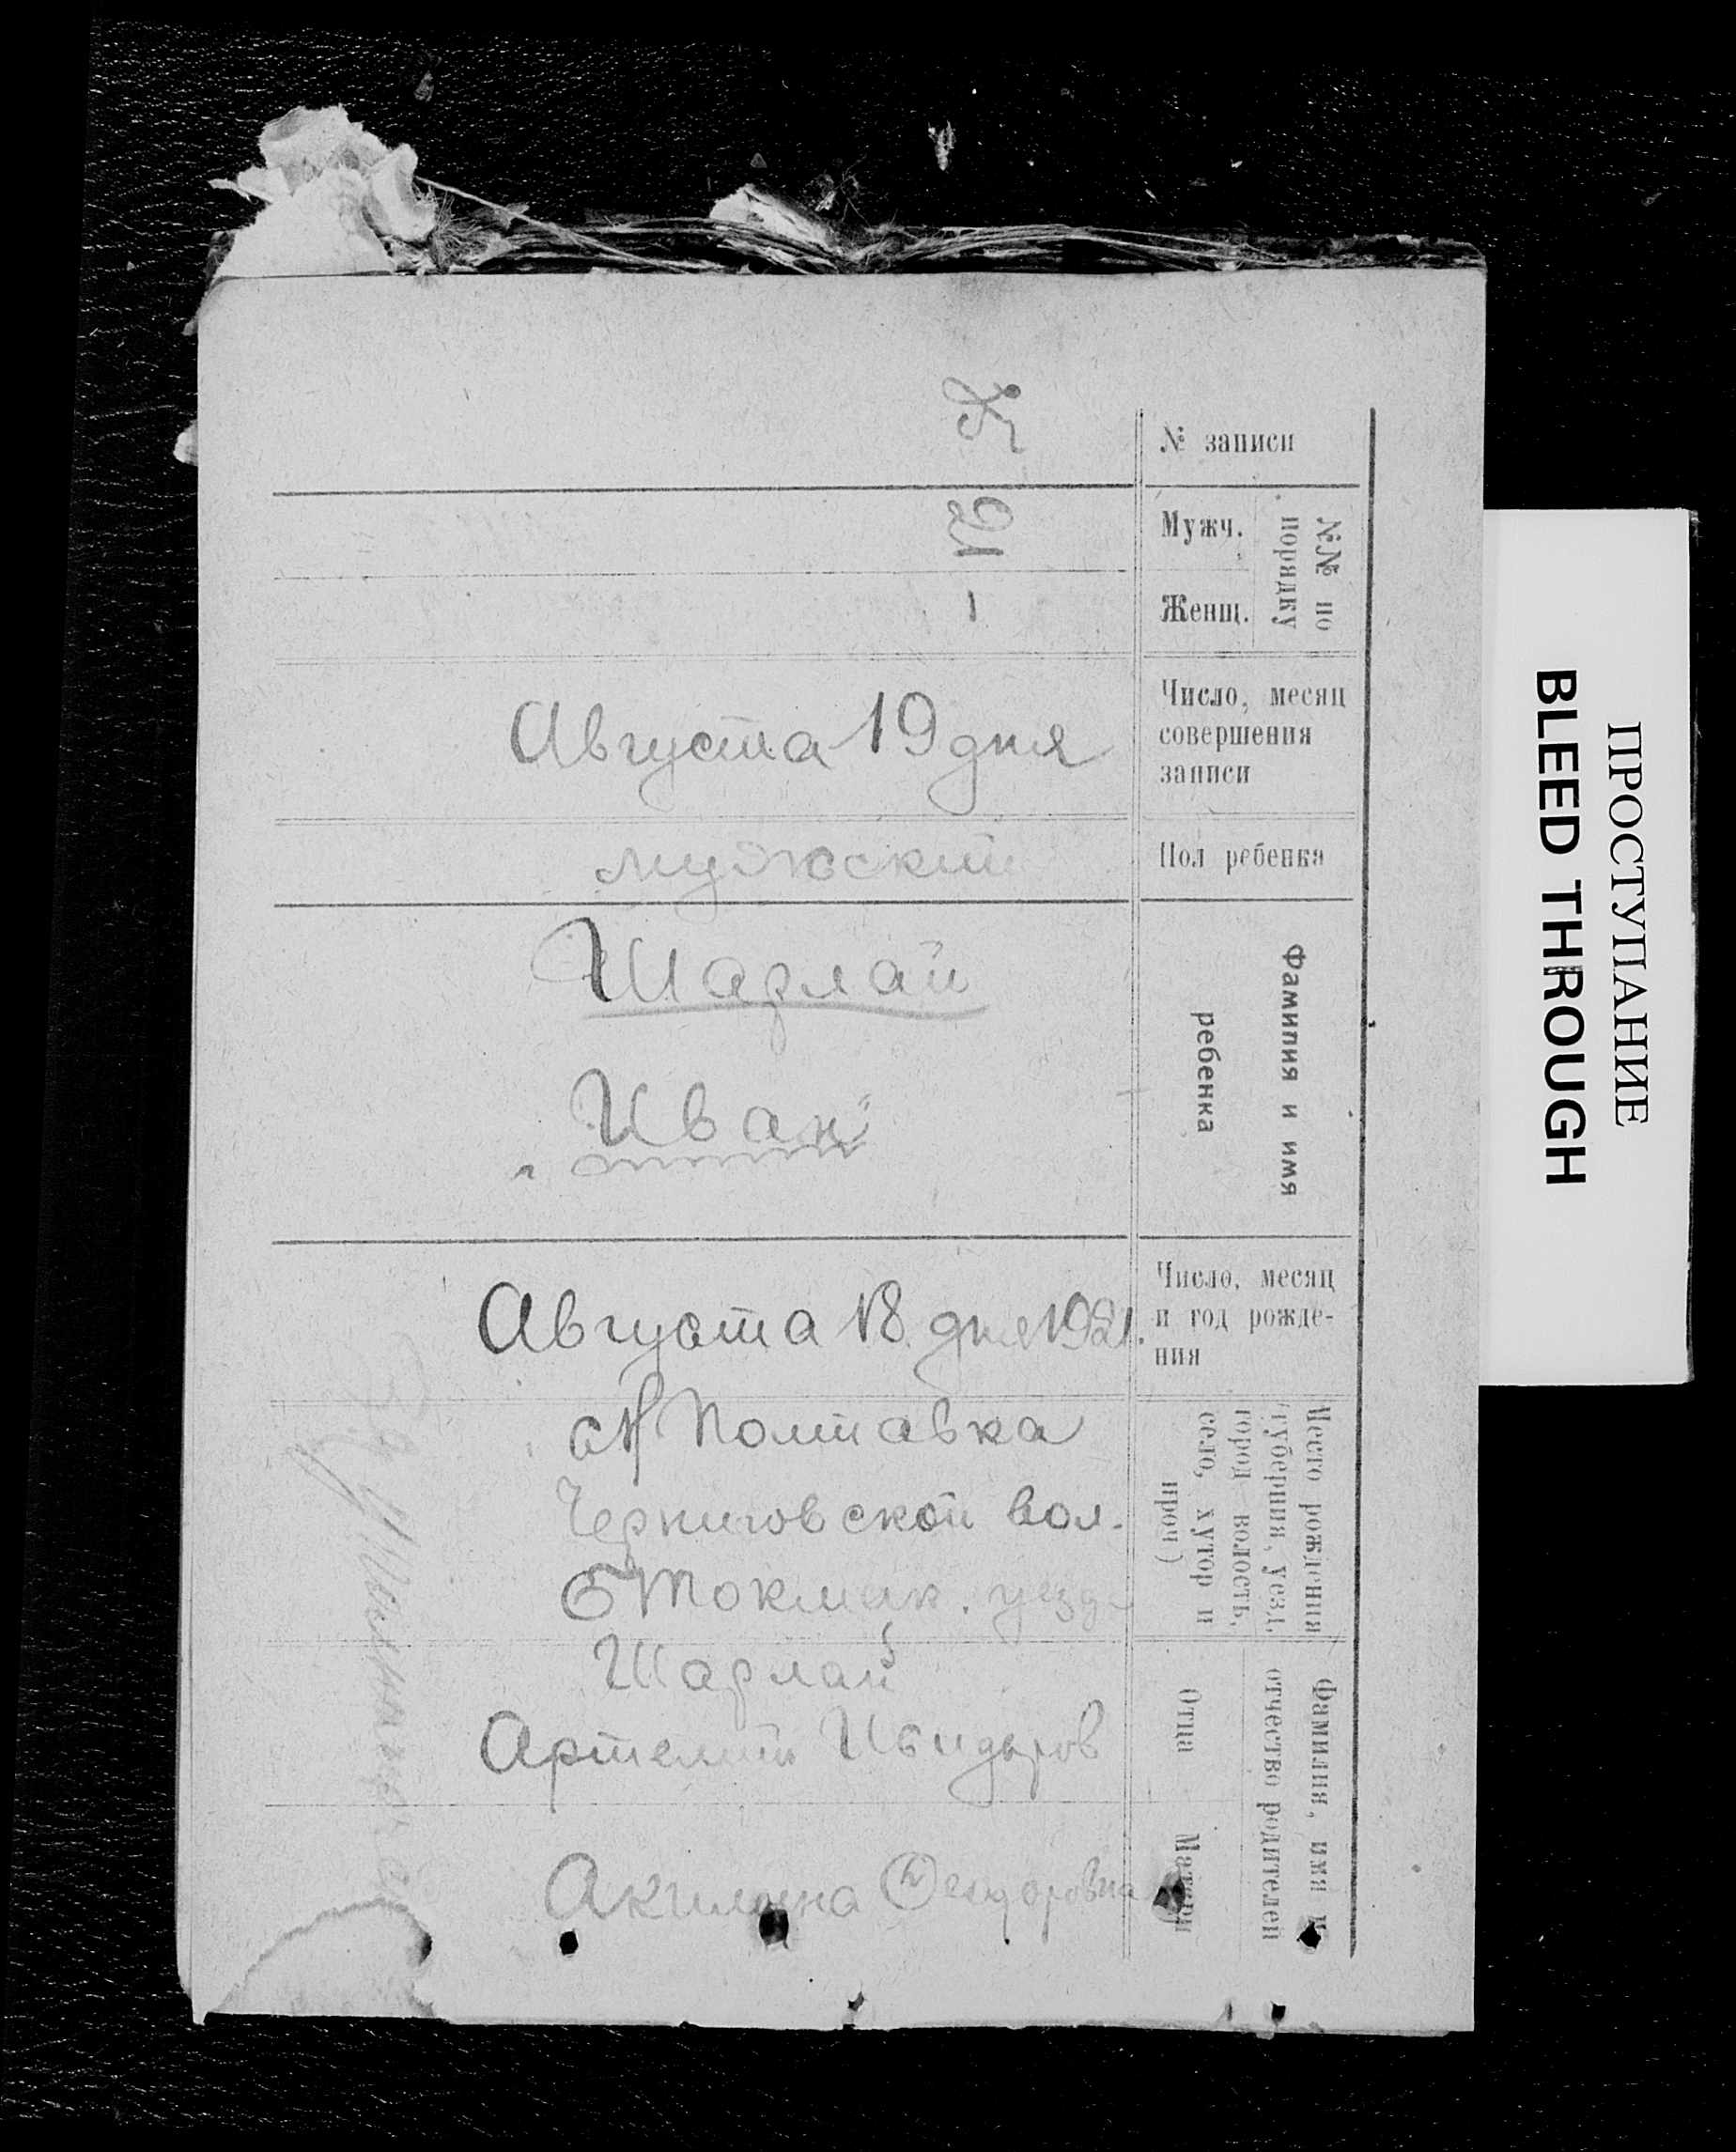 № записи
35
№№ по
порядку
Мужч.
21
Женщ.
-
Число, месяц
совершения
записи
Августа 19 дня
Пол ребенка
мужский
Фамилия и имя
ребенка
Шарлай
Иван
Число, месяц
и год рожде-
ния
Августа 18 дня 1921.
Место рождения
(губерния, уезд,
город волость,
село, хутор и
проч)
Полтавка
Черниговской вол.
Б Токмак. уезда
Фамилия, имя и
отчество родителей
Отца
Шарлай
Артемий
Матери
Акилина Феодоровна
ПРОСТУПАНИЕ
BLEED THROUGH